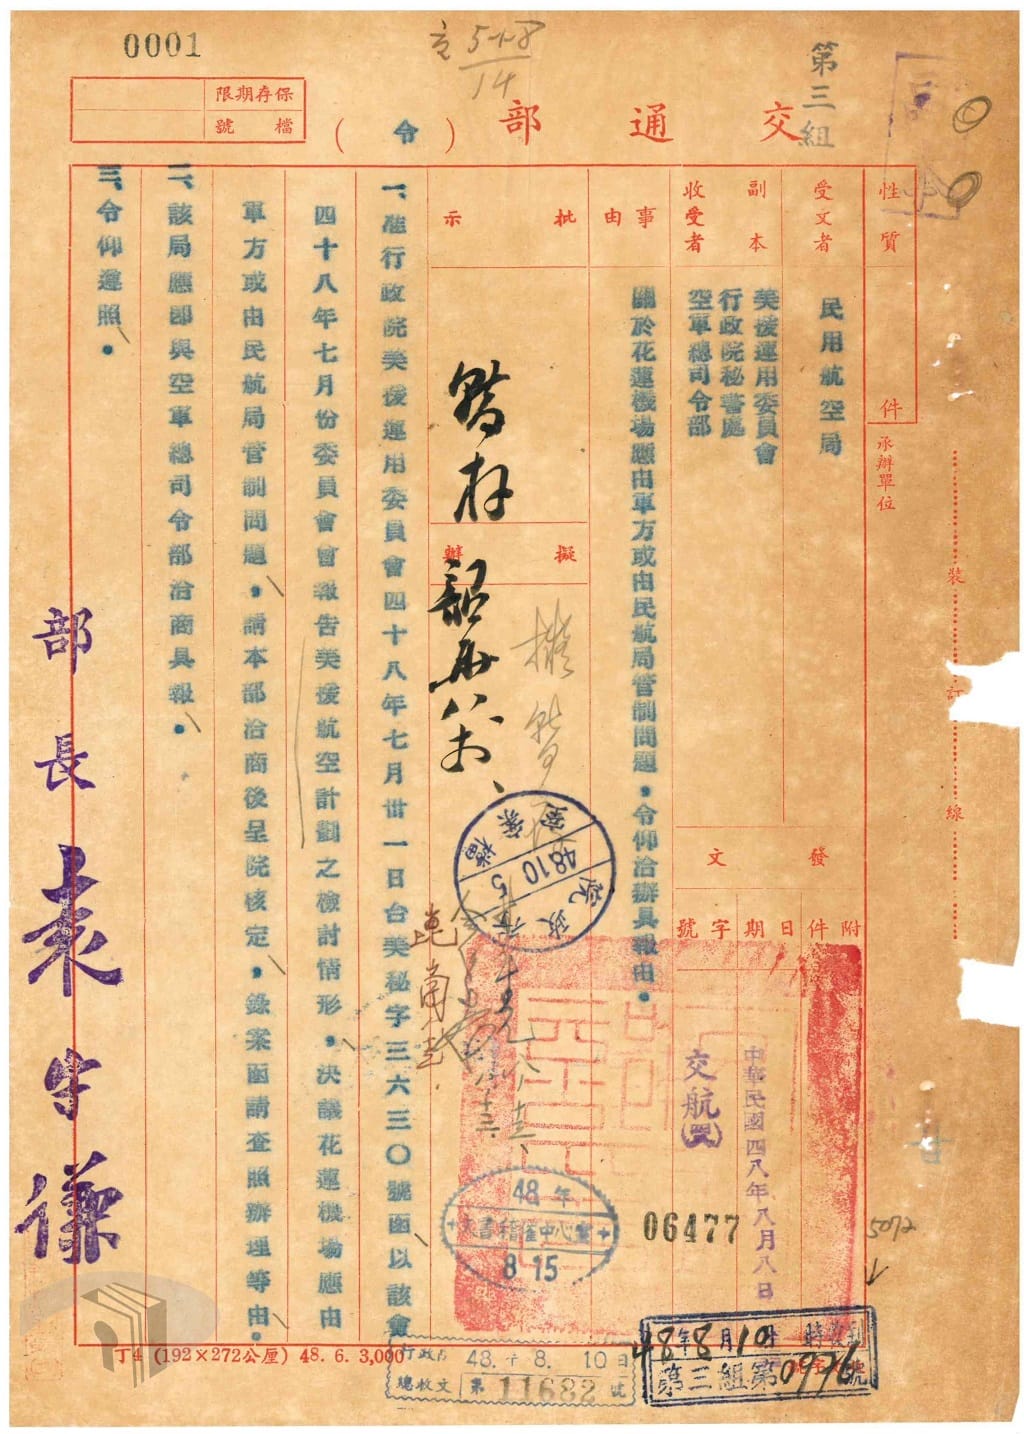 0001
5-1-8
14
第三組
保存期限
檔號
交通部(令)
性質
件
受文者
民用航空局
副本收受者
美援運用委員會
行政院秘書處
空軍總司令部
事由
關於花蓮機場應由軍方或由民航局管制問題,令仰洽辦具報由。
批示
擬辦
承辦單位
發文
附件
日期
字號
中華民國四八年八月八日
交航(四八)
06477
一、准行政院美援運用委員會四十八年七月卅一日台美秘字三六三〇號函以該會
四十八年七月份委員會會報告美援航空計劃之檢討情形,決議花蓮機場應由
軍方或由民航局管制問題,請本部洽商後呈院核定,錄案函請查照辦理等由。
二、該局應即與空軍總司令部洽商具報。
三、令仰遵照。
部長袁守謙
裝
訂
線
暫存
擬暫存
行政院
48.10.5
檔案室
48年
文書稽催中心室
8 15
5072
48年8月10日 時收到
第三組第0976號
丁4 (192×272公厘) 48. 6. 3,000
48. 8. 10日
總收文 第11682號